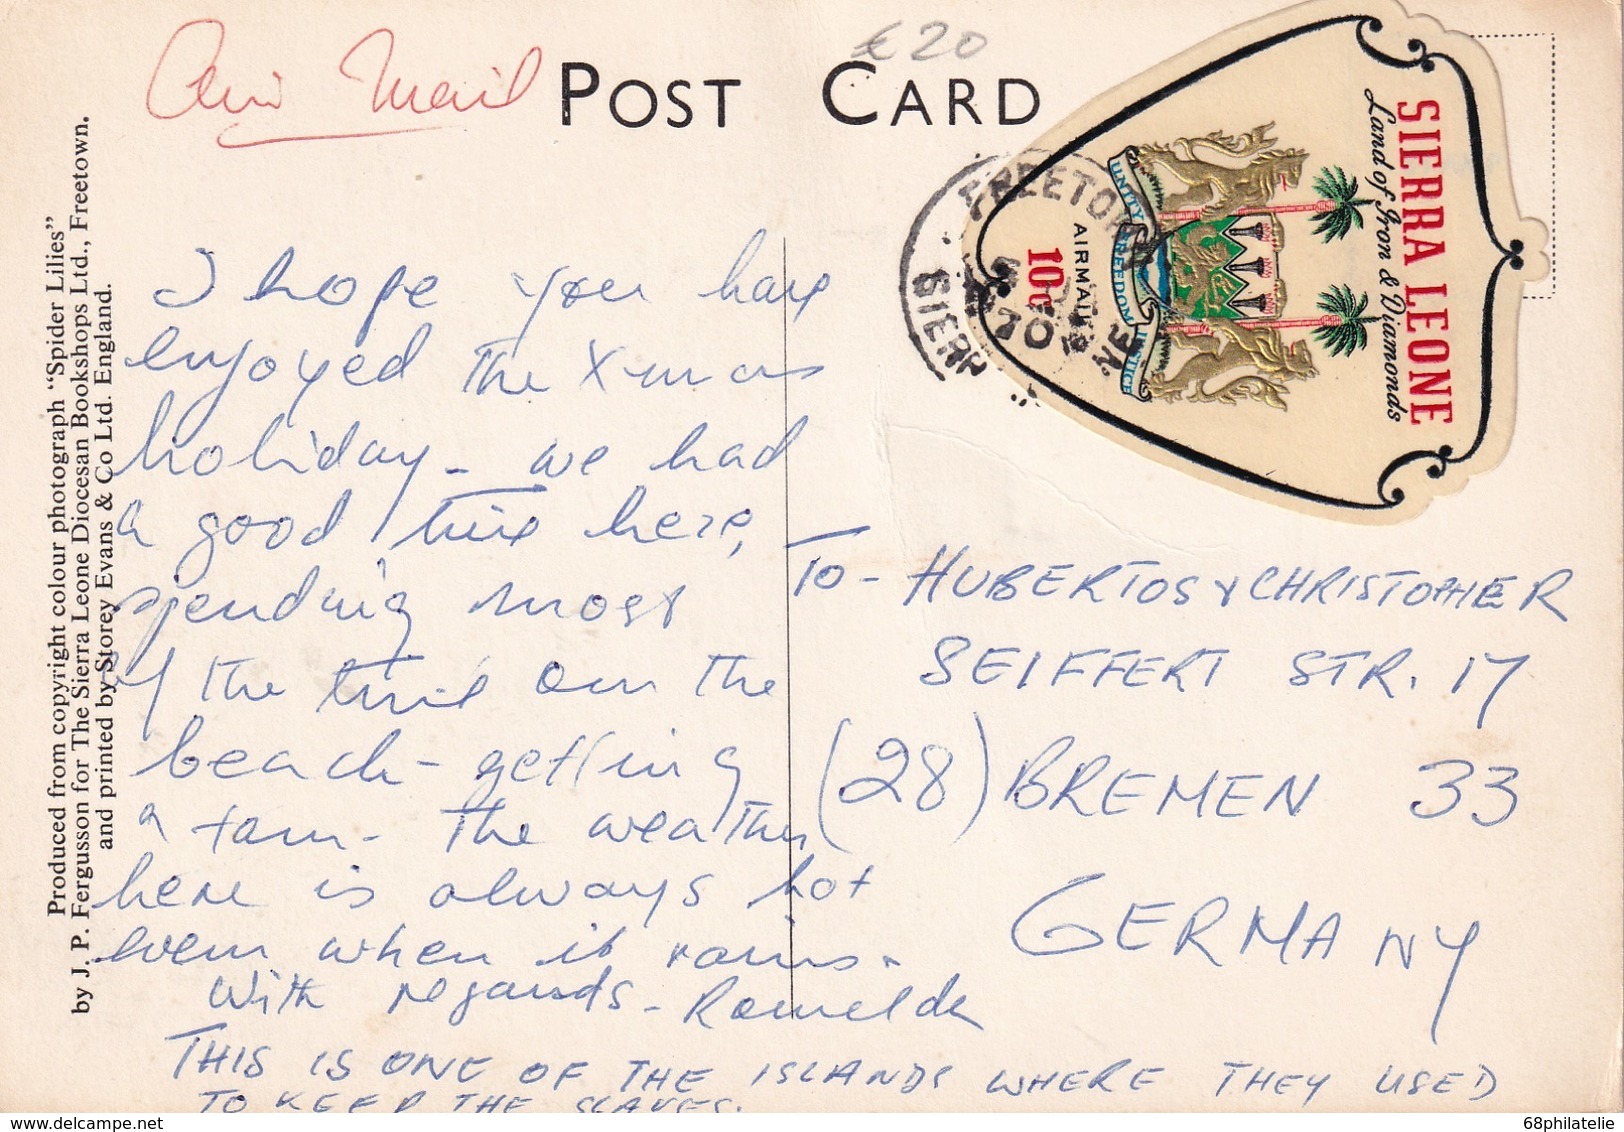 Air Mail
€20
POST CARD
SIERRA LEONE
Land of Iron & Diamonds
UNITY FREEDOM JUSTICE
AIRMAIL
10c
FREETOWN
SIERR NE
70
Produced from copyright colour photograph "Spider Lilies"
by J. P. Fergusson for The Sierra Leone Diocesan Bookshops Ltd., Freetown.
and printed by Storey Evans & Co Ltd. England.
I hope you have
enjoyed the Xmas
holiday - we had
a good time here,
spending most
of the time on the
beach - getting
a tan - the weather
here is always hot
even when it rains.
With regards - Romelda
THIS IS ONE OF THE ISLANDS WHERE THEY USED
TO KEEP THE SLAVES.
TO - HUBERTOS & CHRISTOPHER
SEIFFERT STR. 17
(28) BREMEN 33
GERMANY
68philatelie